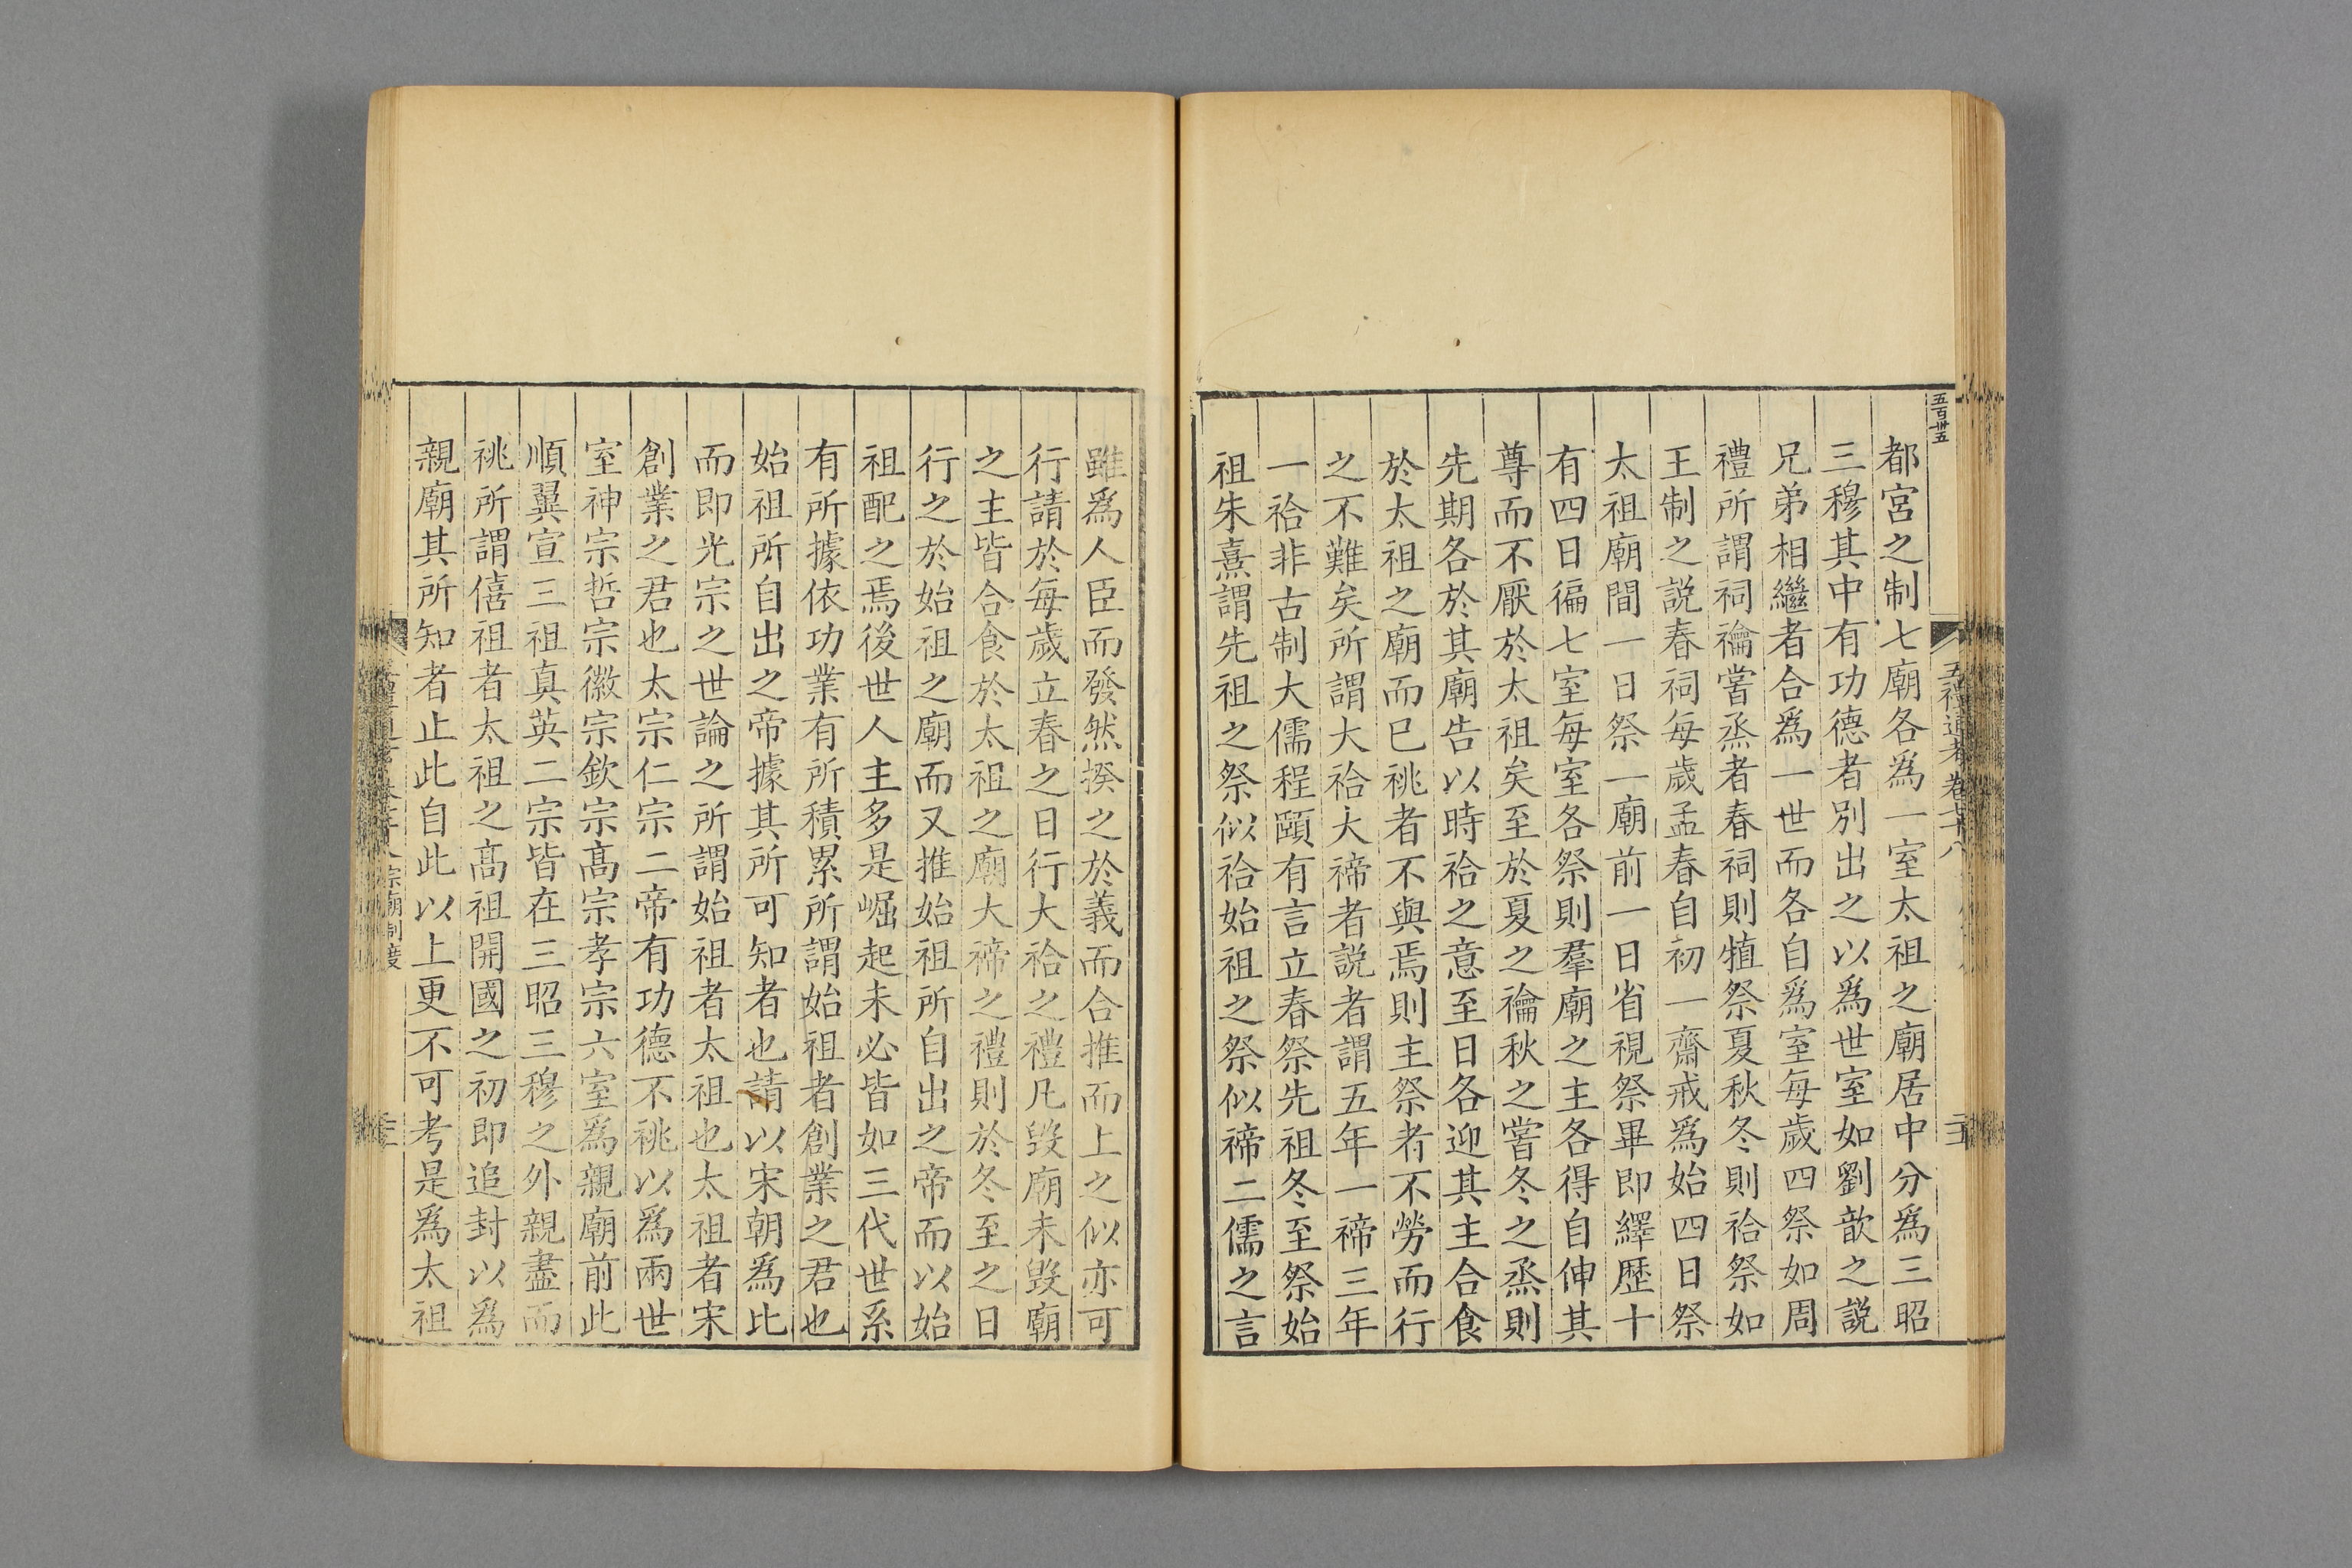 五百卅五
五禮通考卷七十八
都宮之制七廟各爲一室太祖之廟居中分爲三昭
三穆其中有功德者別出之以爲世室如劉歆之説
兄弟相繼者合爲一世而各自爲室每歲四祭如周
禮所謂祠禴嘗烝者春祠則犆祭夏秋冬則祫祭如
王制之説春祠每歲孟春自初一齋戒爲始四日祭
太祖廟間一日祭一廟前一日省視祭畢即繹歷十
有四日徧七室每室各祭則羣廟之主各得自伸其
尊而不厭於太祖矣至於夏之禴秋之嘗冬之烝則
先期各於其廟告以時祫之意至日各迎其主合食
於太祖之廟而已祧者不與焉則主祭者不勞而行
之不難矣所謂大祫大禘者説者謂五年一禘三年
一祫非古制大儒程頤有言立春祭先祖冬至祭始
祖朱熹謂先祖之祭似祫始祖之祭似禘二儒之言
雖爲人臣而發然揆之於義而合推而上之似亦可
行請於每歲立春之日行大祫之禮凡毀廟未毀廟
之主皆合食於太祖之廟大禘之禮則於冬至之日
行之於始祖之廟而又推始祖所自出之帝而以始
祖配之焉後世人主多是崛起未必皆如三代世系
有所據依功業有所積累所謂始祖者創業之君也
始祖所自出之帝據其所可知者也請以宋朝爲比
而即光宗之世論之所謂始祖者太祖也太祖者宋
創業之君也太宗仁宗二帝有功德不祧以爲兩世
室神宗哲宗徽宗欽宗髙宗孝宗六室爲親廟前此
順翼宣三祖真英二宗皆在三昭三穆之外親盡而
祧所謂僖祖者太祖之髙祖開國之初即追封以爲
親廟其所知者止此自此以上更不可考是爲太祖
宗廟制度